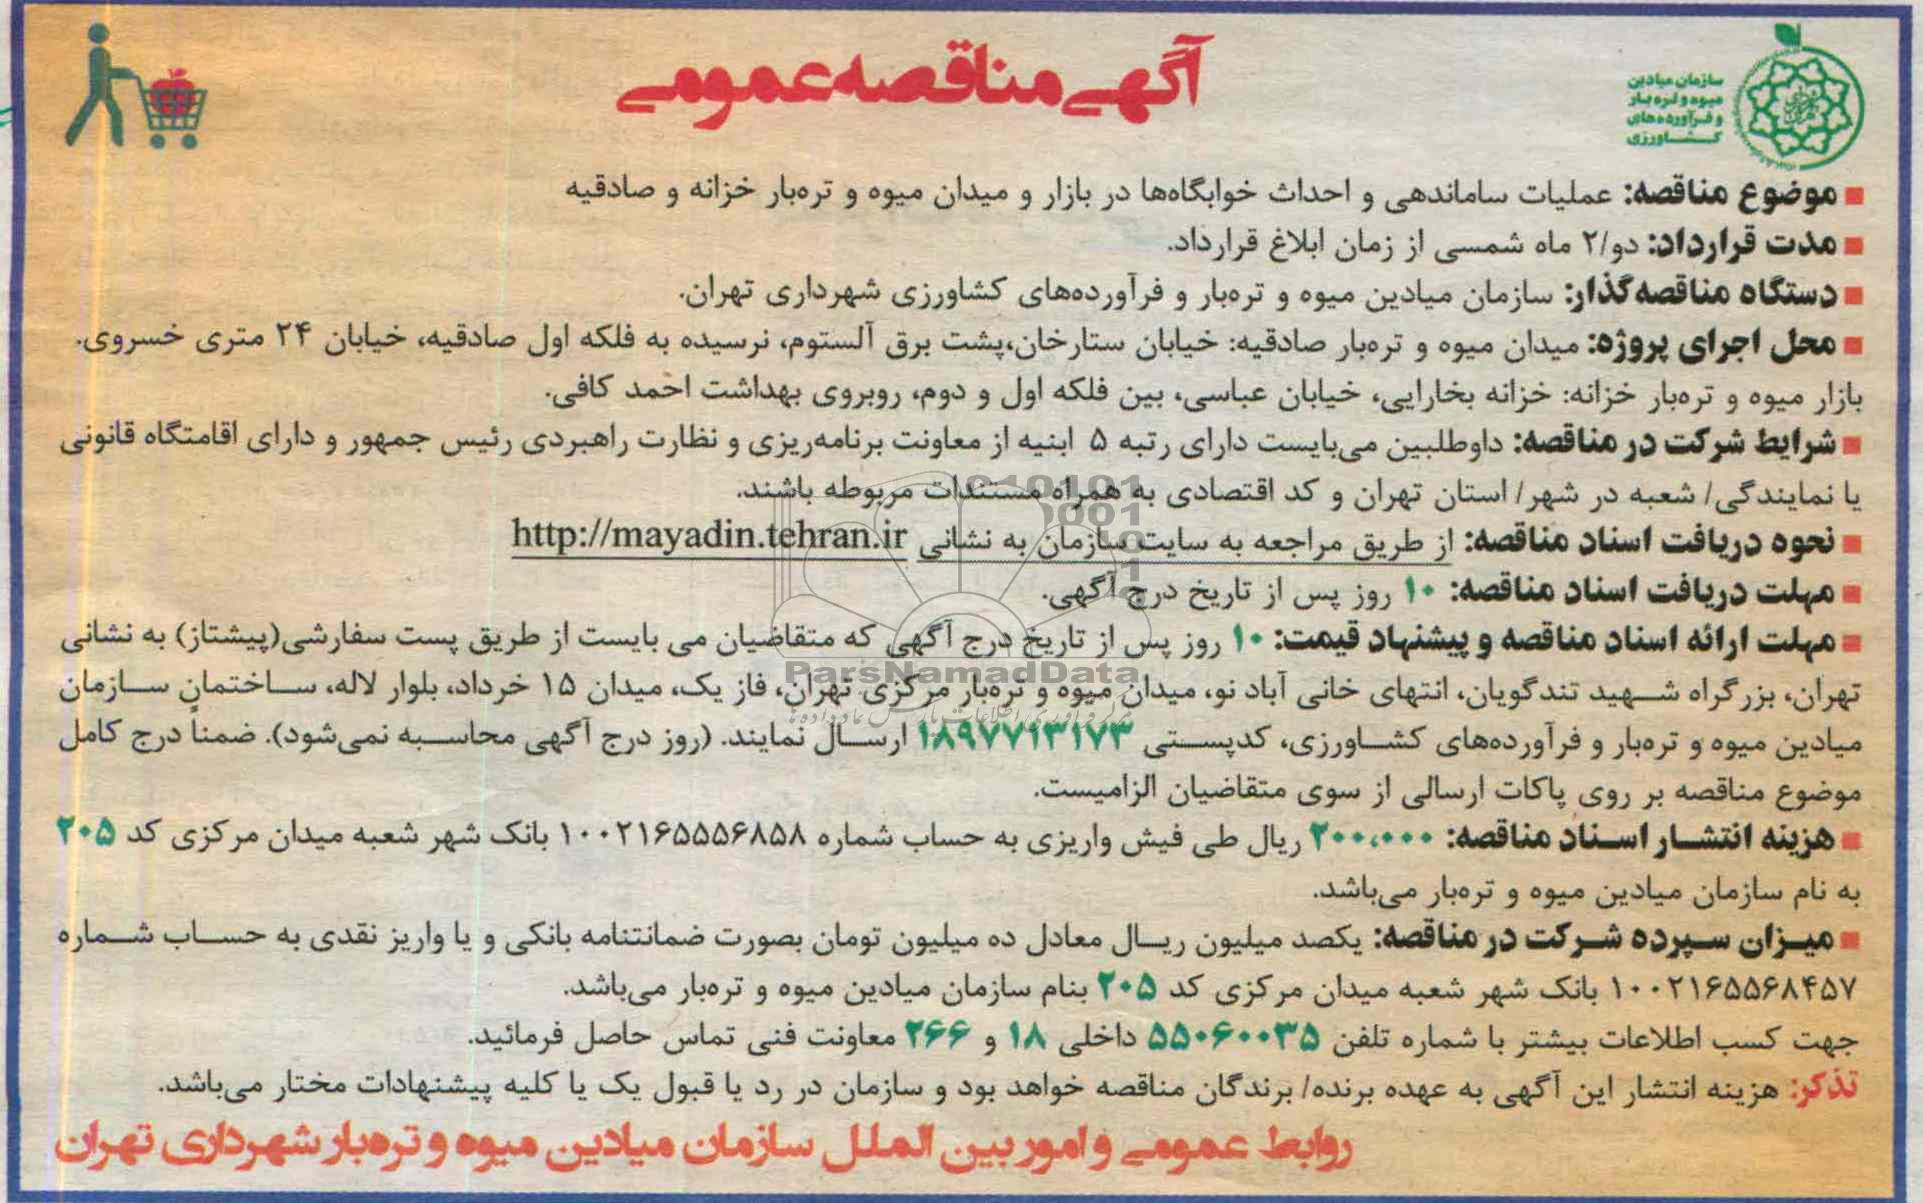 آگهی مناقصه عمومی
سازمان میادین
میوه و تره بار
و فرآورده‌های
کشاورزی
موضوع مناقصه: عملیات ساماندهی و احداث خوابگاه‌ها در بازار و میدان میوه و تره‌بار خزانه و صادقیه
مدت قرارداد: دو/۲ ماه شمسی از زمان ابلاغ قرارداد.
دستگاه مناقصه‌گذار: سازمان میادین میوه و تره‌بار و فرآورده‌های کشاورزی شهرداری تهران.
محل اجرای پروژه: میدان میوه و تره‌بار صادقیه: خیابان ستارخان،پشت برق آلستوم، نرسیده به فلکه اول صادقیه، خیابان ۲۴ متری خسروی.
بازار میوه و تره‌بار خزانه: خزانه بخارایی، خیابان عباسی، بین فلکه اول و دوم، روبروی بهداشت احمد کافی.
شرایط شرکت در مناقصه: داوطلبین می‌بایست دارای رتبه ۵ ابنیه از معاونت برنامه‌ریزی و نظارت راهبردی رئیس جمهور و دارای اقامتگاه قانونی
یا نمایندگی/ شعبه در شهر/ استان تهران و کد اقتصادی به همراه مستندات مربوطه باشند.
نحوه دریافت اسناد مناقصه: از طریق مراجعه به سایت سازمان به نشانی http://mayadin.tehran.ir
مهلت دریافت اسناد مناقصه: ۱۰ روز پس از تاریخ درج آگهی.
مهلت ارائه اسناد مناقصه و پیشنهاد قیمت: ۱۰ روز پس از تاریخ درج آگهی که متقاضیان می بایست از طریق پست سفارشی(پیشتاز) به نشانی
تهران، بزرگراه شهید تندگویان، انتهای خانی آباد نو، میدان میوه و تره‌بار مرکزی تهران، فاز یک، میدان ۱۵ خرداد، بلوار لاله، ساختمان سازمان
میادین میوه و تره‌بار و فرآورده‌های کشاورزی، کدپستی ۱۸۹۷۷۱۳۱۷۳ ارسال نمایند. (روز درج آگهی محاسبه نمی‌شود). ضمناً درج کامل
موضوع مناقصه بر روی پاکات ارسالی از سوی متقاضیان الزامیست.
هزینه انتشار اسناد مناقصه: ۲۰۰،۰۰۰ ریال طی فیش واریزی به حساب شماره ۱۰۰۲۱۶۵۵۵۶۸۵۸ بانک شهر شعبه میدان مرکزی کد ۲۰۵
به نام سازمان میادین میوه و تره‌بار می‌باشد.
میزان سپرده شرکت در مناقصه: یکصد میلیون ریال معادل ده میلیون تومان بصورت ضمانتنامه بانکی و یا واریز نقدی به حساب شماره
۱۰۰۲۱۶۵۵۶۸۴۵۷ بانک شهر شعبه میدان مرکزی کد ۲۰۵ بنام سازمان میادین میوه و تره‌بار می‌باشد.
جهت کسب اطلاعات بیشتر با شماره تلفن ۵۵۰۶۰۰۳۵ داخلی ۱۸ و ۲۶۶ معاونت فنی تماس حاصل فرمائید.
تذکر: هزینه انتشار این آگهی به عهده برنده/ برندگان مناقصه خواهد بود و سازمان در رد یا قبول یک یا کلیه پیشنهادات مختار می‌باشد.
روابط عمومی و امور بین الملل سازمان میادین میوه و تره‌بار شهرداری تهران
ParsNamadData